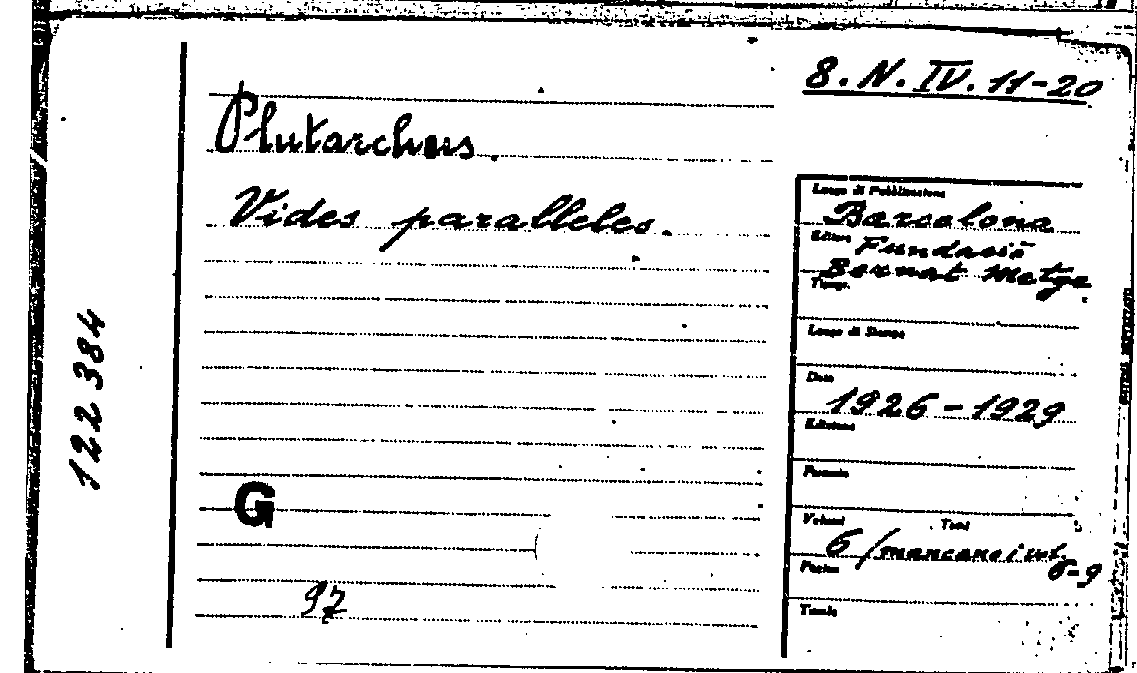 8. N. IV. 11-20
Plutarchus.
Vides paralleles.
Luogo di Pubblicazione
Barcelona
Editore Fundació
Bernat Metge
Tipogr.
Luogo di Stampa
Data
1926-1929
Edizione
Formato
Volumi Tomi
6/mancano i vol.
6-9
Pagine
Tavole
G
97
122384